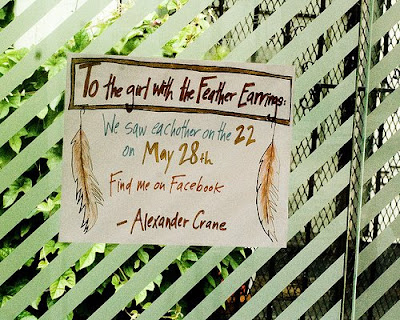 To the girl with the Feather Earrings:
We saw eachother on the 22
on May 28th
Find me on Facebook
- Alexander Crane